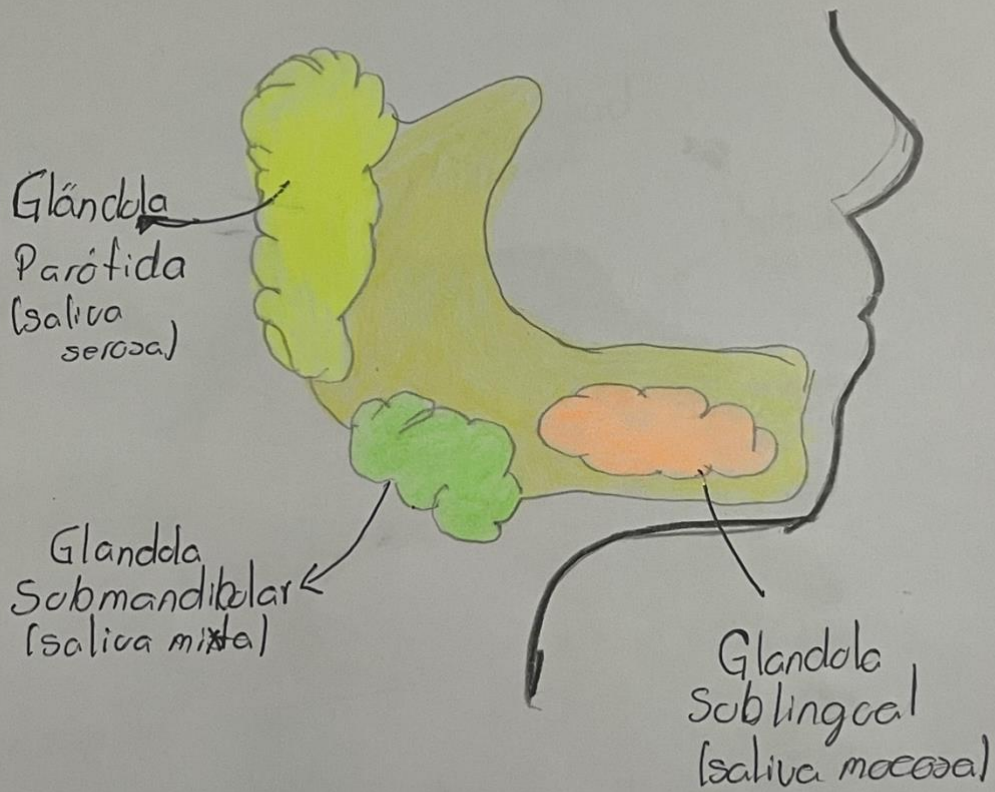 Glándula
Parótida
(saliva
serosa)
Glandula
Submandibular
(saliva mixta)
Glandula
Sublingual
(saliva mucosa)